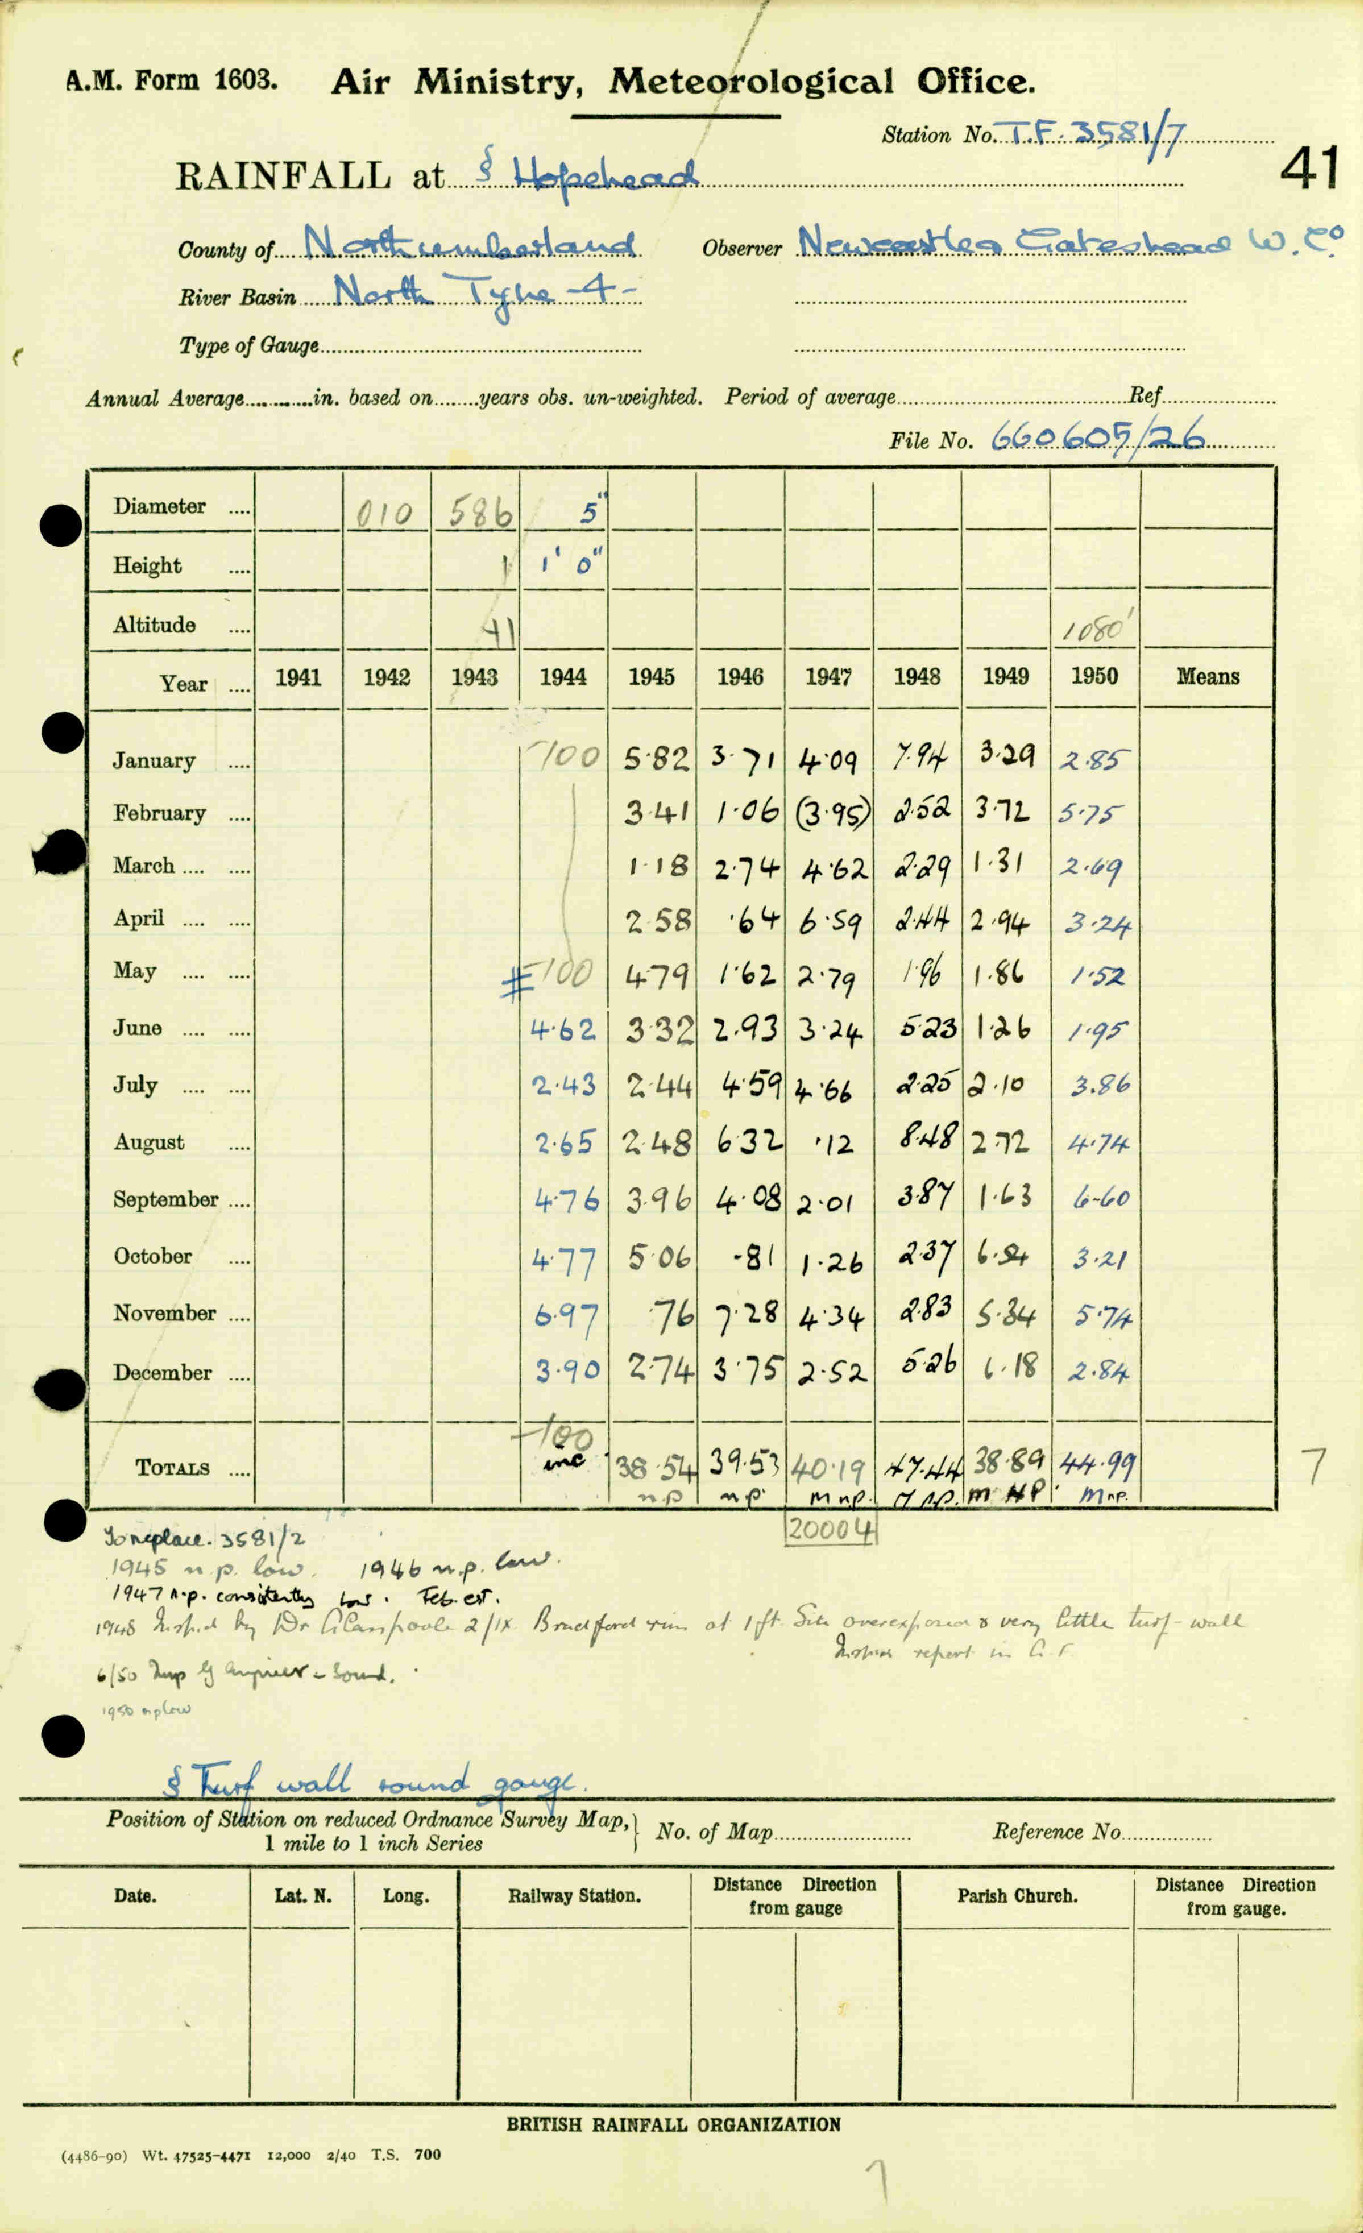 A.M. Form 1603. Air Ministry, Meteorological Office.
Station No. T.F. 3581/7
41
RAINFALL at § Hopehead
County of Northumberland Observer Newcastle & Gateshead W. Co.
River Basin North Tyne -4-
Type of Gauge
Annual Average in. based on years obs. un-weighted. Period of average Ref
File No. 660605/26
Diameter 010 586 5"
Height 1 1' 0"
Altitude 41 1080'
Year 1941 1942 1943 1944 1945 1946 1947 1948 1949 1950 Means
January -100 5.82 3.71 4.09 7.94 3.29 2.85
February 3.41 1.06 (3.95) 2.52 3.72 5.75
March 1.18 2.74 4.62 2.29 1.31 2.69
April 2.58 .64 6.59 2.44 2.94 3.24
May ‡ -100 4.79 1.62 2.79 1.96 1.86 1.52
June 4.62 3.32 2.93 3.24 5.23 1.26 1.95
July 2.43 2.44 4.59 4.66 2.25 2.10 3.86
August 2.65 2.48 6.32 .12 8.48 2.72 4.74
September 4.76 3.96 4.08 2.01 3.87 1.63 6.60
October 4.77 5.06 .81 1.26 2.37 6.54 3.21
November 6.97 .76 7.28 4.34 2.83 5.34 5.74
December 3.90 2.74 3.75 2.52 5.26 6.18 2.84
-100
TOTALS inc 38.54 39.53 40.19 47.44 38.89 44.99 7
n.p n.p. m n.p. n.p. m N.P. M n.p.
20004
To replace. 3581/2
1945 n.p. low. 1946 n.p. low.
1947 n.p. consistently low. Feb. est.
1948 Insp.d by Dr Glasspoole 2/IX Bradford rim at 1 ft. Site overexposed & very little turf-wall
report in
6/50 Insp by - Sound.
1950 n.p low
§ Turf wall round gauge.
Position of Station on reduced Ordnance Survey Map, No. of Map Reference No
1 mile to 1 inch Series
Date. Lat. N. Long. Railway Station. Distance Direction from gauge Parish Church. Distance Direction from gauge.
BRITISH RAINFALL ORGANIZATION
(4486-90) Wt. 47525-4471 12,000 2/40 T.S. 700
7